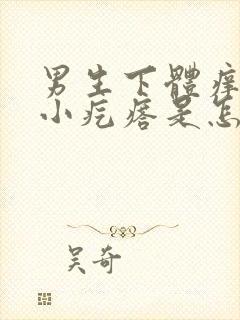 男生下體痒
小疙瘩是怎
吴奇